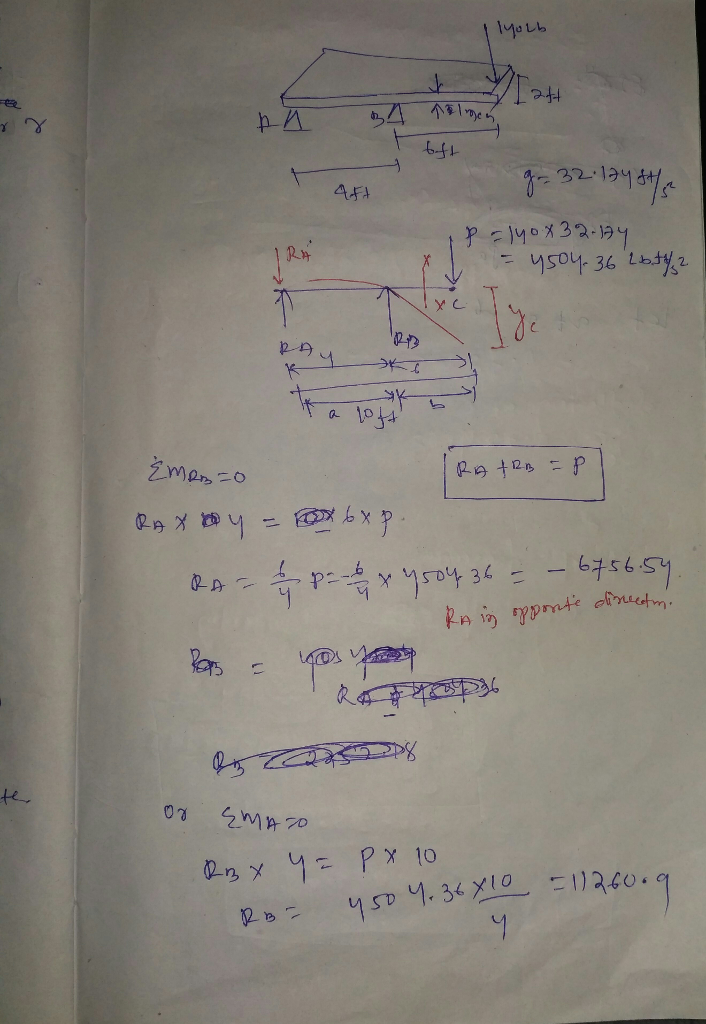 140 Lb
2ft
A
B
1 inch
6ft
4ft
g = 32.174 ft/s²
RA
P = 140 x 32.174
= 4504.36 Lb ft/s²
x
x C
yc
RA
RB
4
6
a
10ft
b
ΣMRB = 0
RA + RB = P
RA x 4 = 6 x P
RA = 6/4 P = -6/4 x 4504.36 = - 6756.54
RA is opposite direction.
RB =
or ΣMA = 0
RB x 4 = P x 10
RB = 4504.36 x 10 / 4 = 11260.9